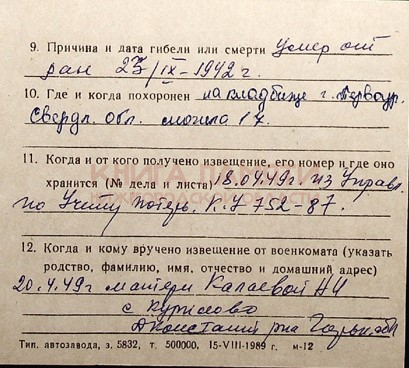 9. Причина и дата гибели или смерти умер от
ран 23/IX-1942 г.
10. Где и когда похоронен на кладбище г. Первоур.
Свердл. обл. могила 17.
11. Когда и от кого получено извещение, его номер и где оно
хранится (№ дела и листа) 18.04.49 г. из Управл.
по Учету потерь. К.У-752-87.
12. Когда и кому вручено извещение от военкомата (указать
родство, фамилию, имя, отчество и домашний адрес)
20.4.49 г матери Калаевой
с
Д Константин рна Горьк обл
Тип. автозавода, з. 5832, т. 500000, 15-VIII-1989 г. м-12
КНИГА ПАМЯТИ